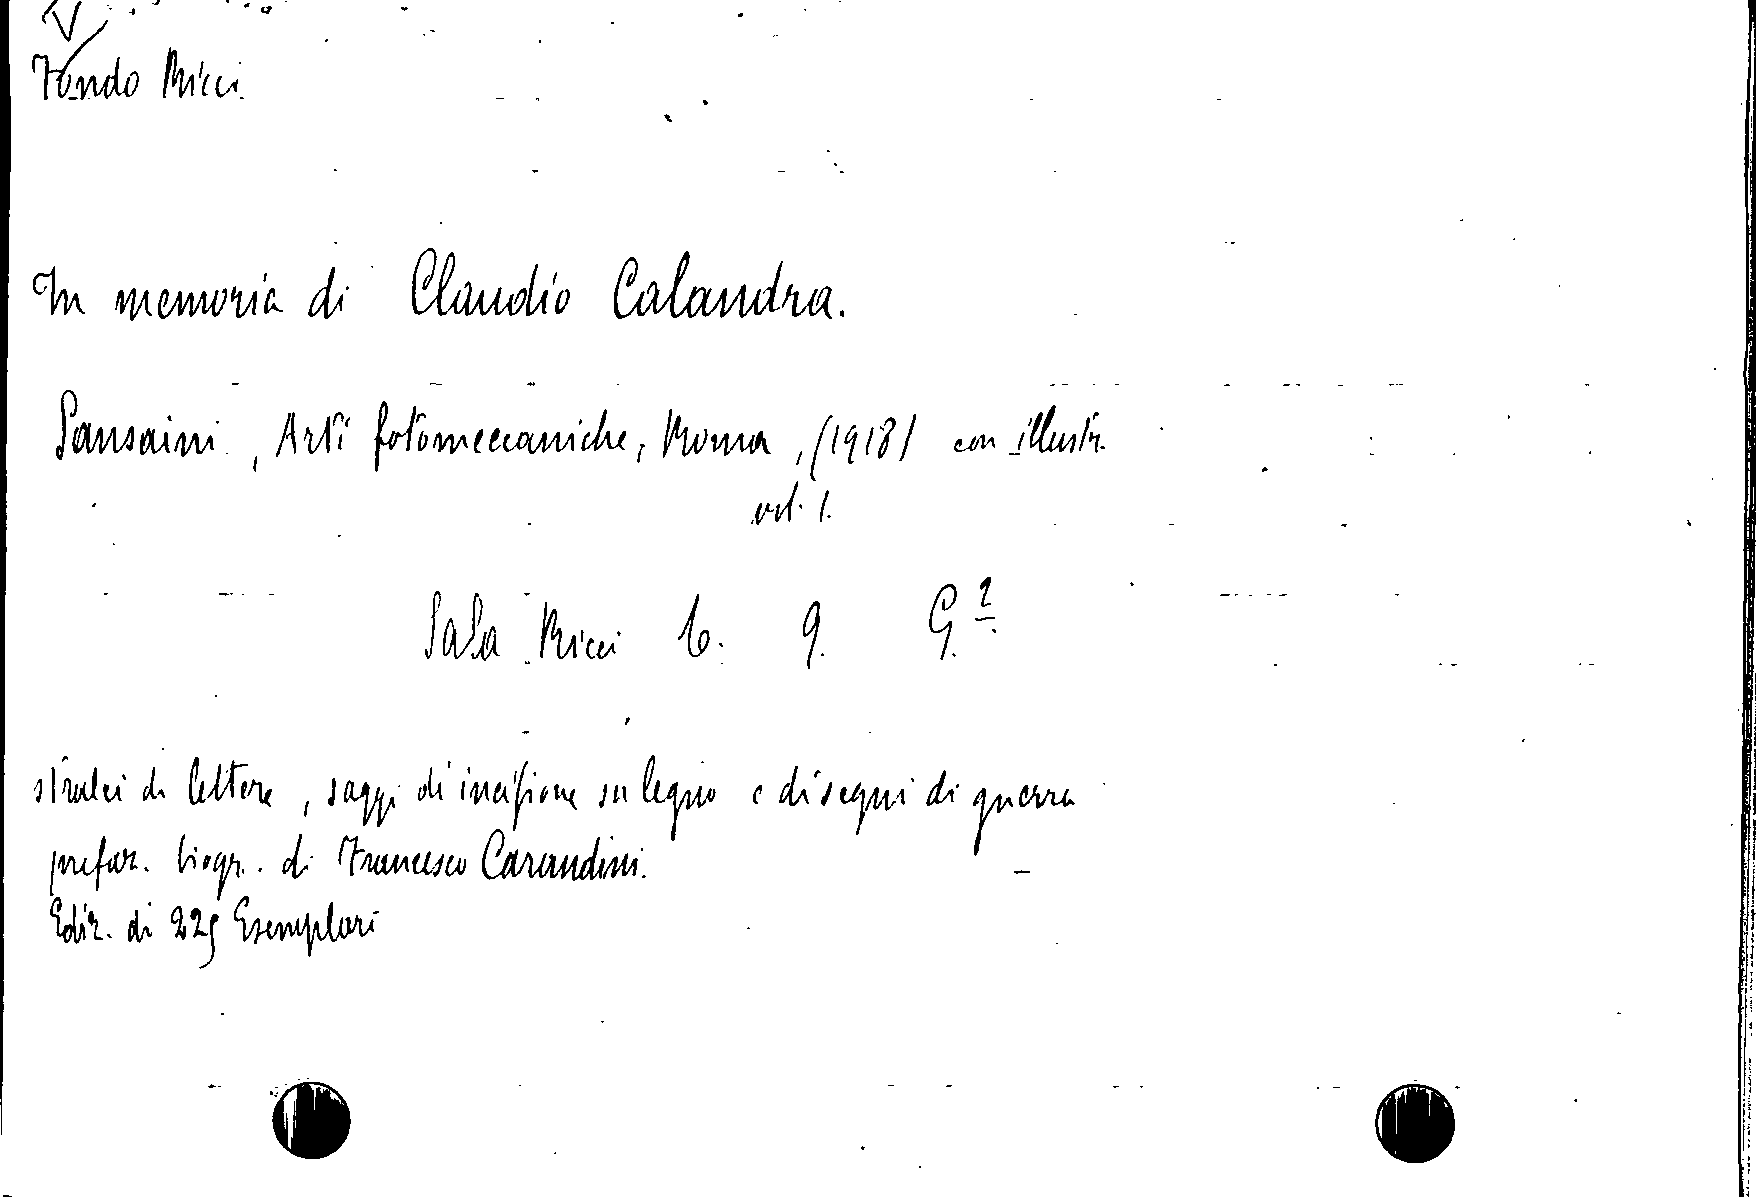 V
Fondo Ricci
In memoria di Claudio Calandra.
Sansaini, Arti fotomeccaniche, Roma, (1918) con illustr.
vol. 1.
Sala Ricci b. 9. G.2
stralci di lettere, saggi di incisione su legno e disegni di guerra
prefaz. biogr. di Francesco Carandini.
Ediz. di 225 Esemplari